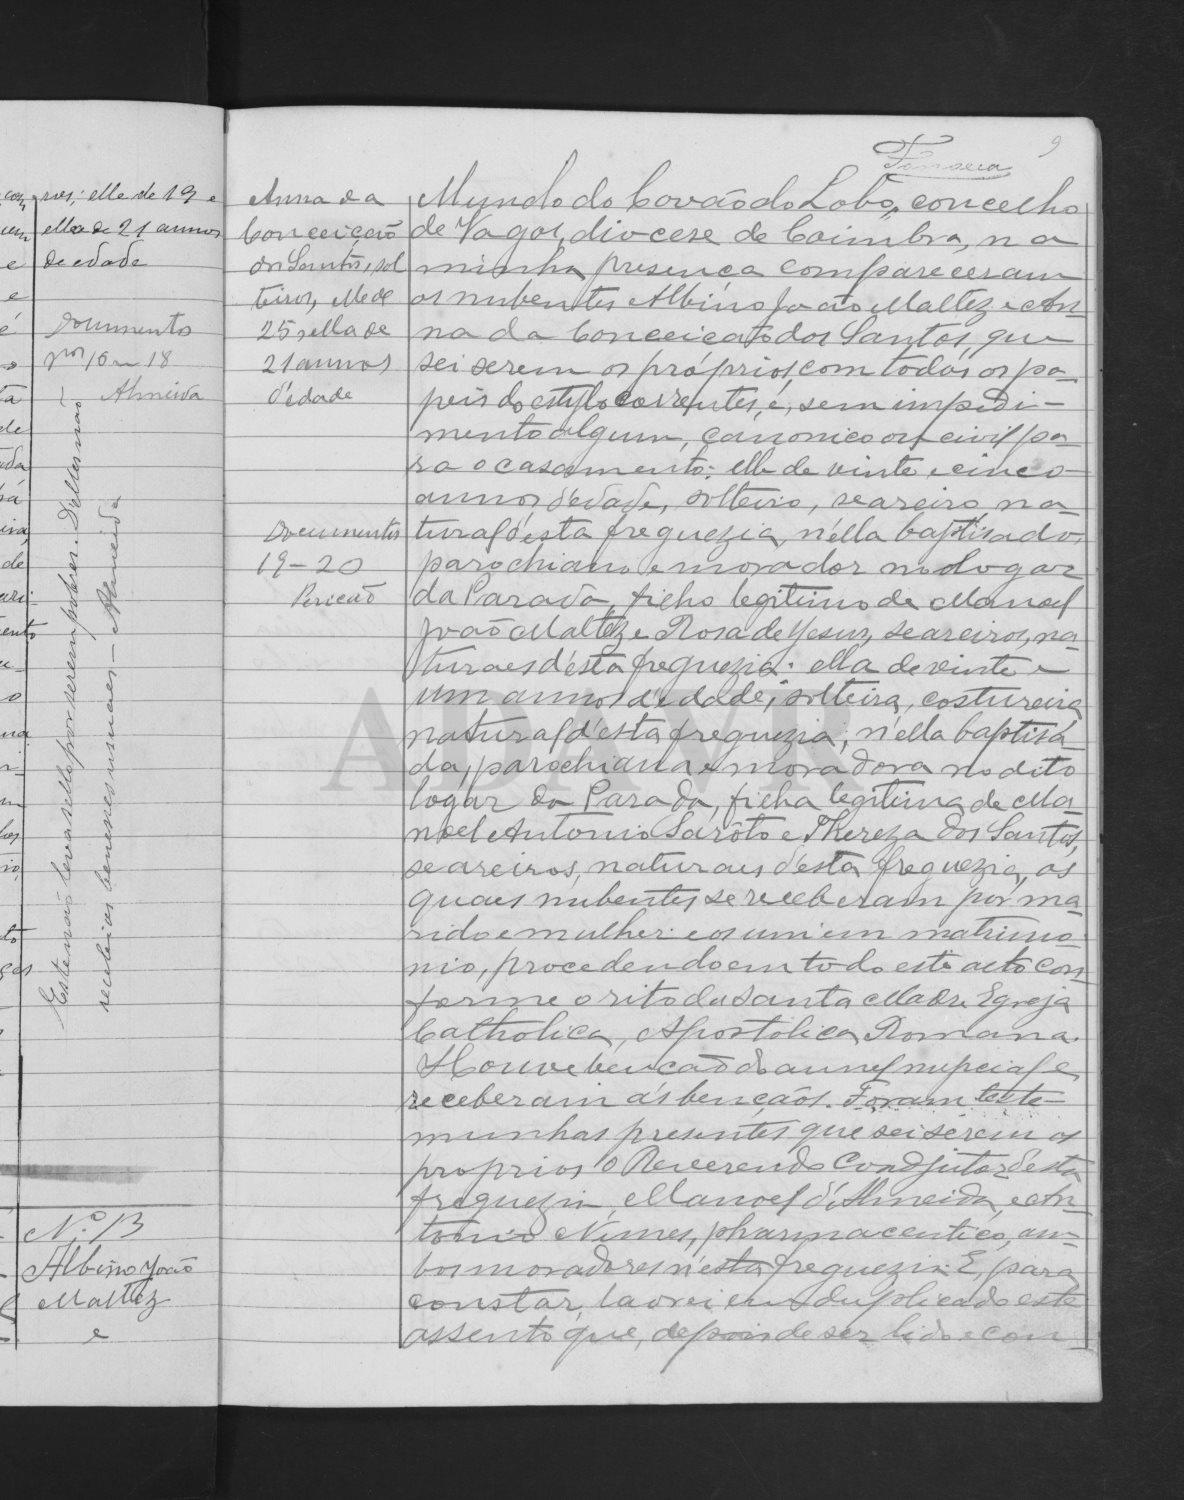 ros; elle de 19 e
ella de 21 annos
de edade
Documentos
nos 16 a 18
Almeida
Este não leva sello por serem pobres. D'elles não
recebi os benesses usuaes — Almeida
N.º 13
Albino João
Maltez
e
Fonseca
9
Anna da
Conceição
dos Santos, sol
teiros, elle de
25 e ella de
21 annos
d'edade
Documentos
19-20
Mundo do Covão do Lobo, concelho
de Vagos, diocese de Coimbra, na
minha presença compareceram
os nubentes Albino João Maltez e An-
na da Conceição dos Santos, que
sei serem os próprios, com todos os pa-
peis do estylo correntes, e, sem impedi-
mento algum, canonico ou civil pa-
ra o casamento: elle de vinte e cinco
annos d'edade, solteiro, seareiro, na-
tural d'esta freguezia, n'ella baptisado,
parochiano e morador no logar
da Parada, filho legitimo de Manoel
João Maltez e Rosa de Jesus, seareiros, na-
turaes d'esta freguezia: ella de vinte e
um annos d'edade, solteira, costureira
natural d'esta freguezia, n'ella baptisa-
da, parochiana e moradora no dito
logar da Parada, filha legitima de Ma-
noel Antonio Sarôto e Thereza dos Santos,
seareiros, naturaes d'esta freguezia, os
quaes nubentes se receberam por ma-
rido e mulher e os uni em matrimo-
nio, procedendo em todo este acto con-
forme o rito da Santa Madre Egreja
Catholica, Apostolica Romana.
Houve benção do annel nupcial e
receberam as bençãos. Foram teste-
munhas presentes que sei serem os
proprios o Reverendo Coadjutor d'esta
freguezia, Manoel d'Almeida, e An-
tonio Nunes, pharmaceutico, am-
bos moradores n'esta freguezia. E, para
constar, lavrei em duplicado este
assento que, depois de ser lido e con-
ADAVR